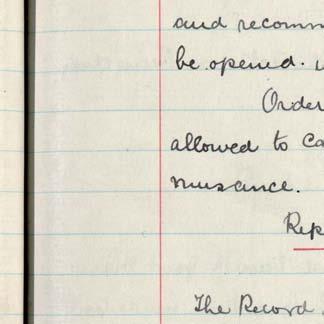 and recomm
be opened.
Order
allowed to Ca
nuisance.
Rep
The Record